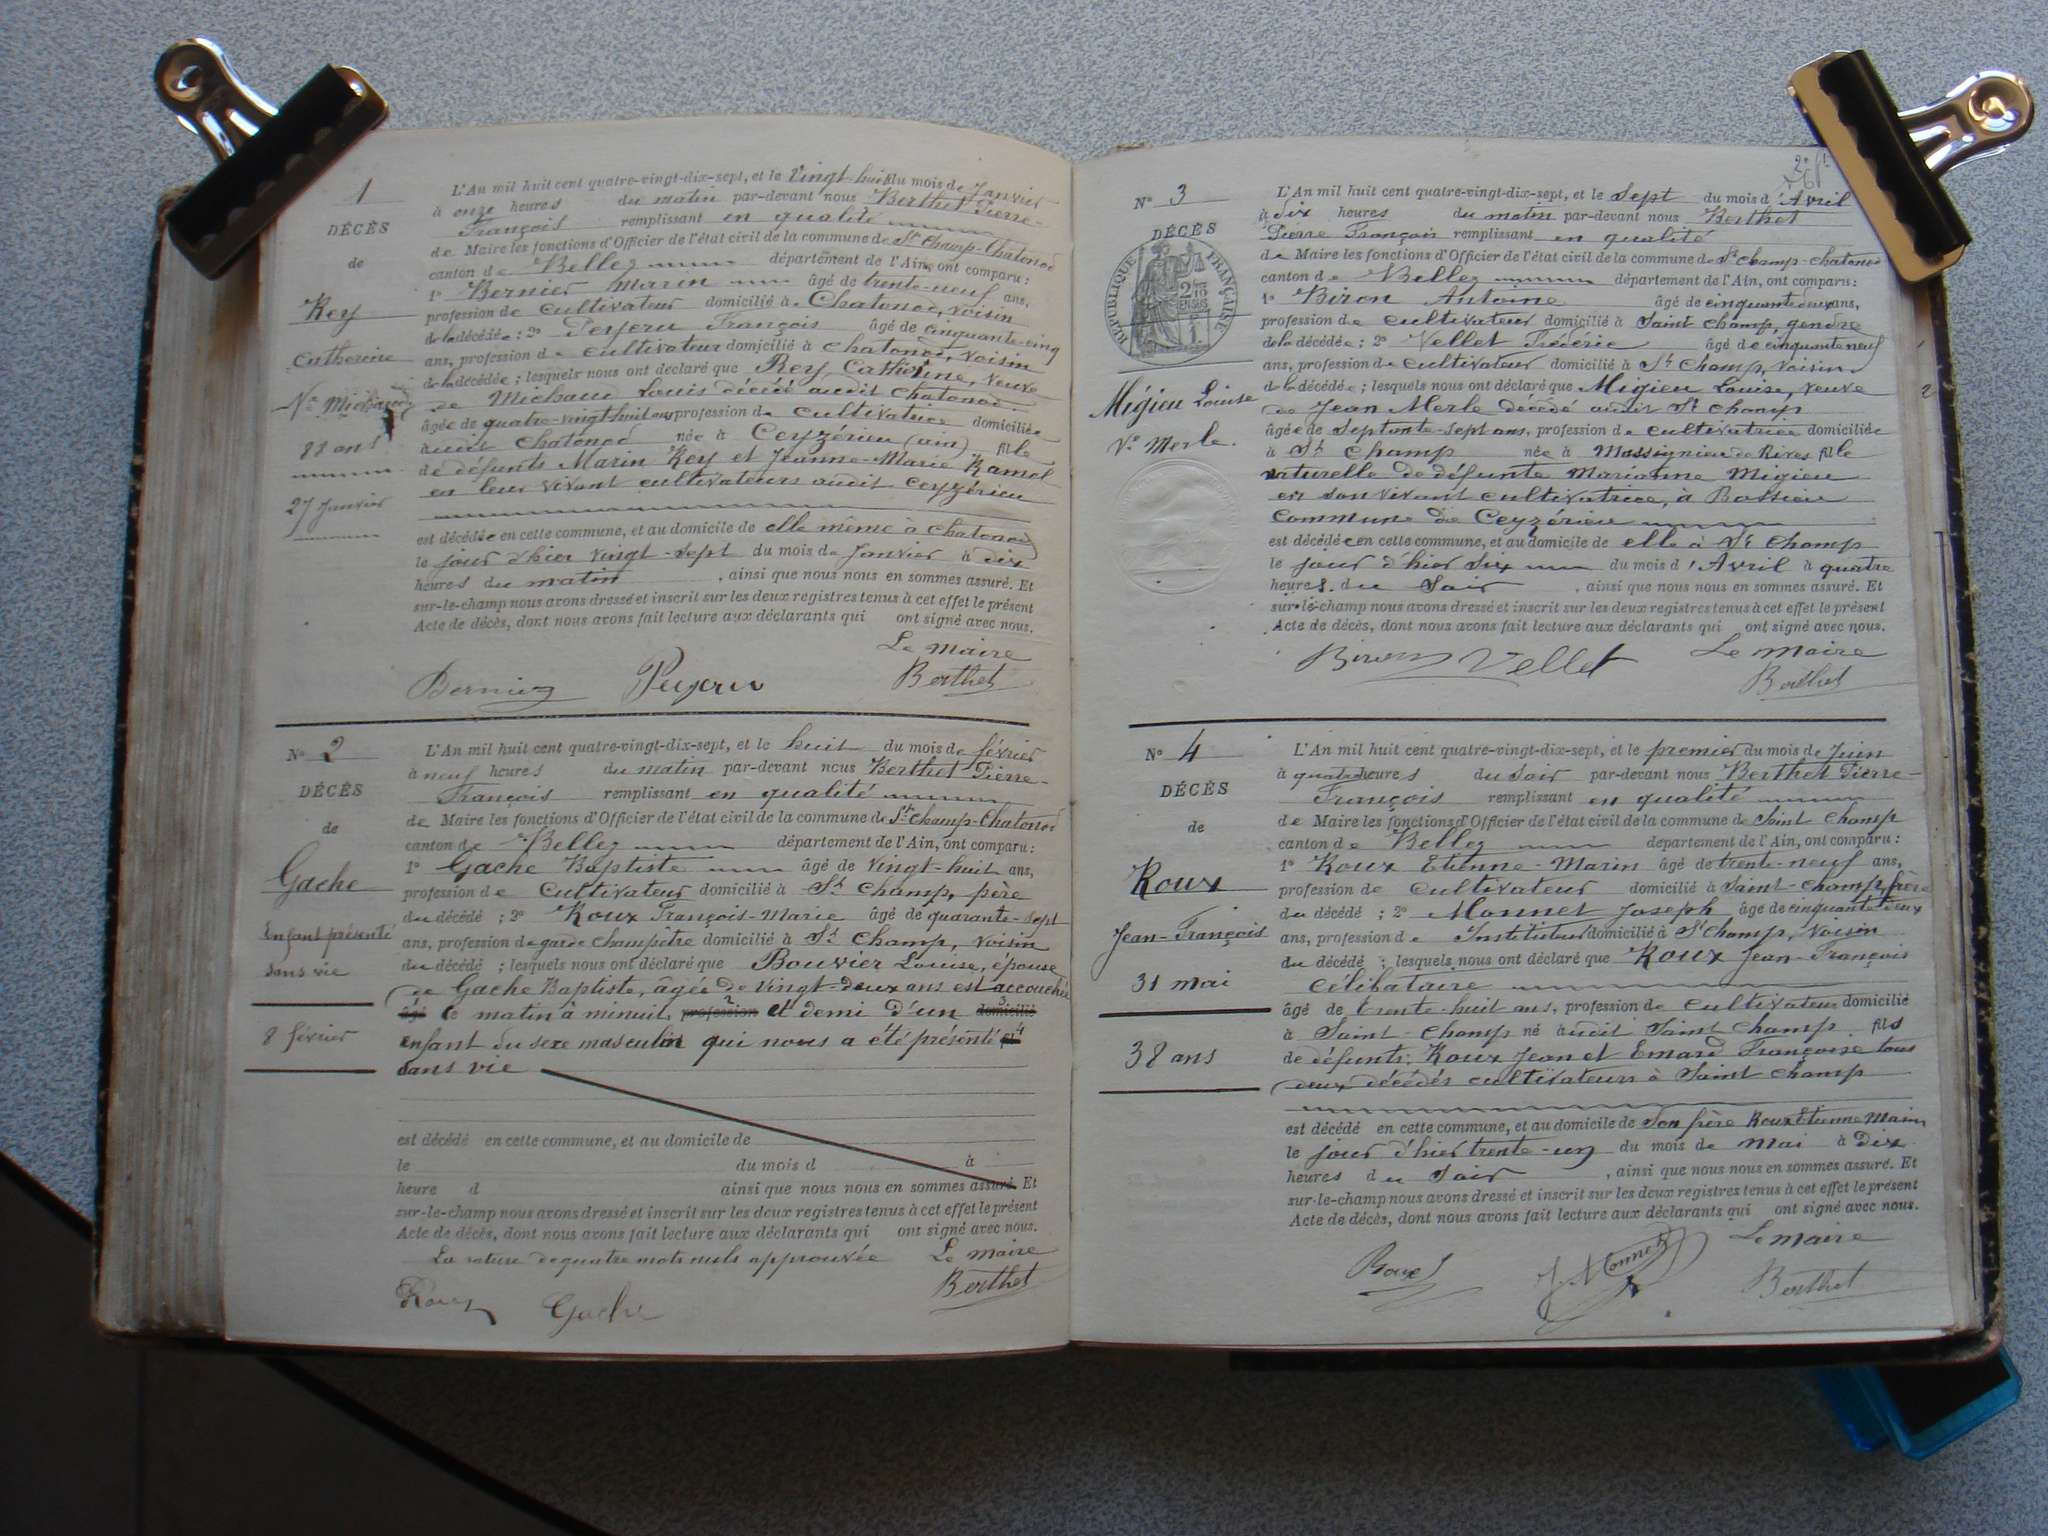 1
DÉCÈS
de
Rey
Catherine
Ve Michaud
88 ans
27 Janvier
L'An mil huit cent quatre-vingt-dix-sept, et le vingt huit du mois de Janvier
à onze heures du matin par-devant nous Berthet Pierre-
François remplissant en qualité
de Maire les fonctions d'Officier de l'état civil de la commune de St Champ-Chatonod
canton de Belley département de l'Ain, ont comparu:
1° Bernier Marin âgé de trente-neuf ans,
profession de cultivateur domicilié à Chatonod, voisin
de la décédée: 2° Peyzeru François âgé de cinquante-cinq
ans, profession de cultivateur domicilié à Chatonod, voisin
de la décédée; lesquels nous ont déclaré que Rey Catherine, veuve
de Michaud Louis décédé audit Chatonod.
âgée de quatre-vingt huit ans, profession de cultivatrice domiciliée
audit Chatonod née à Ceyzérieu (ain) fille
de défunts Marin Rey et Jeanne-Marie Ramel
en leur vivant cultivateurs audit Ceyzérieu
est décédée en cette commune, et au domicile de elle même à Chatonod
le jour d'hier vingt-sept du mois de Janvier à dix
heures du matin, ainsi que nous nous en sommes assuré. Et
sur-le-champ nous avons dressé et inscrit sur les deux registres tenus à cet effet le présent
Acte de décès, dont nous avons fait lecture aux déclarants qui ont signé avec nous.
Le Maire
Bernier Berthet
No 2
DÉCÈS
de
Gache
Enfant présenté
sans vie
8 février
L'An mil huit cent quatre-vingt-dix-sept, et le huit du mois de février
à neuf heures du matin par-devant nous Berthet Pierre-
François remplissant en qualité
de Maire les fonctions d'Officier de l'état civil de la commune de St Champ-Chatonod
canton de Belley département de l'Ain, ont comparu:
1° Gache Baptiste âgé de vingt-huit ans,
profession de cultivateur domicilié à St Champ, père
du décédé; 2° Roux François-Marie âgé de quarante-sept
ans, profession de garde champêtre domicilié à St Champ, voisin
du décédé; lesquels nous ont déclaré que Bouvier Louise, épouse
de Gache Baptiste, agée de vingt-deux ans est accouchée
âgé ce matin à minuit, profession 2 et demi d'un domicilié 3
enfant du sexe masculin qui nous a été présenté 4
sans vie
est décédé en cette commune, et au domicile de
le du mois d à
heure d ainsi que nous nous en sommes assuré. Et
sur-le-champ nous avons dressé et inscrit sur les deux registres tenus à cet effet le présent
Acte de décès, dont nous avons fait lecture aux déclarants qui ont signé avec nous.
La rature de quatre mots nuls approuvée Le Maire
Roux Gache Berthet
No 3
DÉCÈS
RÉPUBLIQUE FRANÇAISE
Migieu Louise
Ve Merle.
L'An mil huit cent quatre-vingt-dix-sept, et le Sept du mois d'Avril
à dix heures du matin par-devant nous Berthet
Pierre François remplissant en qualité
de Maire les fonctions d'Officier de l'état civil de la commune de St Champ-Chatonod
canton de Belley département de l'Ain, ont comparu:
1° Biron Antoine âgé de cinquante deux ans,
profession de cultivateur domicilié à Saint Champ, gendre
de la décédée: 2° Vellet Frédéric âgé de cinquante neuf
ans, profession de cultivateur domicilié à St Champ, voisin
de la décédée; lesquels nous ont déclaré que Migieu Louise, veuve
de Jean Merle décédé audit St Champ
âgée de Septante-sept ans, profession de cultivatrice domiciliée
à St Champ née à Massignieu de Rives fille
naturelle de défunte Marianne Migieu
en son vivant cultivatrice, à Bassieu
Commune de Ceyzérieu
est décédée en cette commune, et au domicile de elle à St Champ
le jour d'hier six du mois d'Avril à quatre
heures du Soir, ainsi que nous nous en sommes assuré. Et
sur-le-champ nous avons dressé et inscrit sur les deux registres tenus à cet effet le présent
Acte de décès, dont nous avons fait lecture aux déclarants qui ont signé avec nous.
Le Maire
Vellet Berthet
No 4
DÉCÈS
de
Roux
Jean-François
31 mai
38 ans
L'An mil huit cent quatre-vingt-dix-sept, et le premier du mois de Juin
à quatre heures du Soir par-devant nous Berthet Pierre-
François remplissant en qualité
de Maire les fonctions d'Officier de l'état civil de la commune de Saint Champ
canton de Belley département de l'Ain, ont comparu:
1° Roux Etienne-Marin âgé de trente-neuf ans,
profession de cultivateur domicilié à Saint-Champ, frère
du décédé; 2° Monnet Joseph âgé de cinquante deux
ans, profession de Instituteur domicilié à St Champ, voisin
du décédé; lesquels nous ont déclaré que Roux Jean-François
célibataire
âgé de trente-huit ans, profession de cultivateur domicilié
à Saint-Champ né audit Saint Champ fils
de défunts: Roux Jean et Emard Françoise tous
deux décédés cultivateurs à Saint Champ
est décédé en cette commune, et au domicile de Son frère Roux Etienne Marin
le jour d'hier trente-un du mois de Mai à dix
heures du Soir, ainsi que nous nous en sommes assuré. Et
sur-le-champ nous avons dressé et inscrit sur les deux registres tenus à cet effet le présent
Acte de décès, dont nous avons fait lecture aux déclarants qui ont signé avec nous.
Le Maire
Roux J. Monnet Berthet